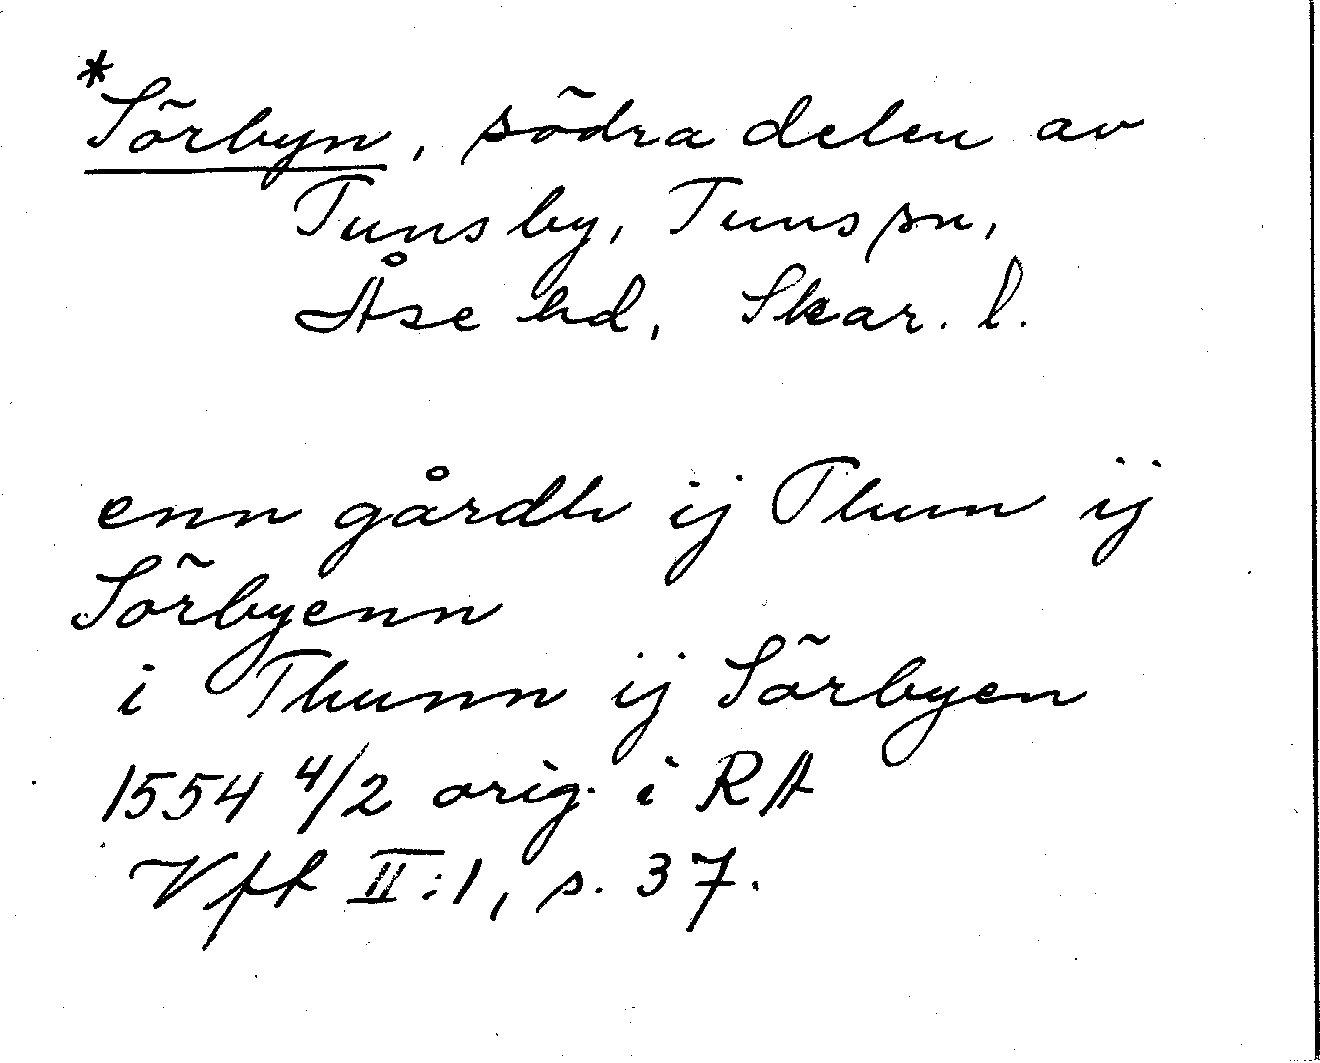 *Sörbyn, södra delen av
Tunsby, Tuns sn,
Åse hd, Skar. l.
enn gårdh ij Thun ij
Sörbyenn
i Thunn ij Sörbyen
1554 4/2 orig. i RA
Vff II:1, s. 37.